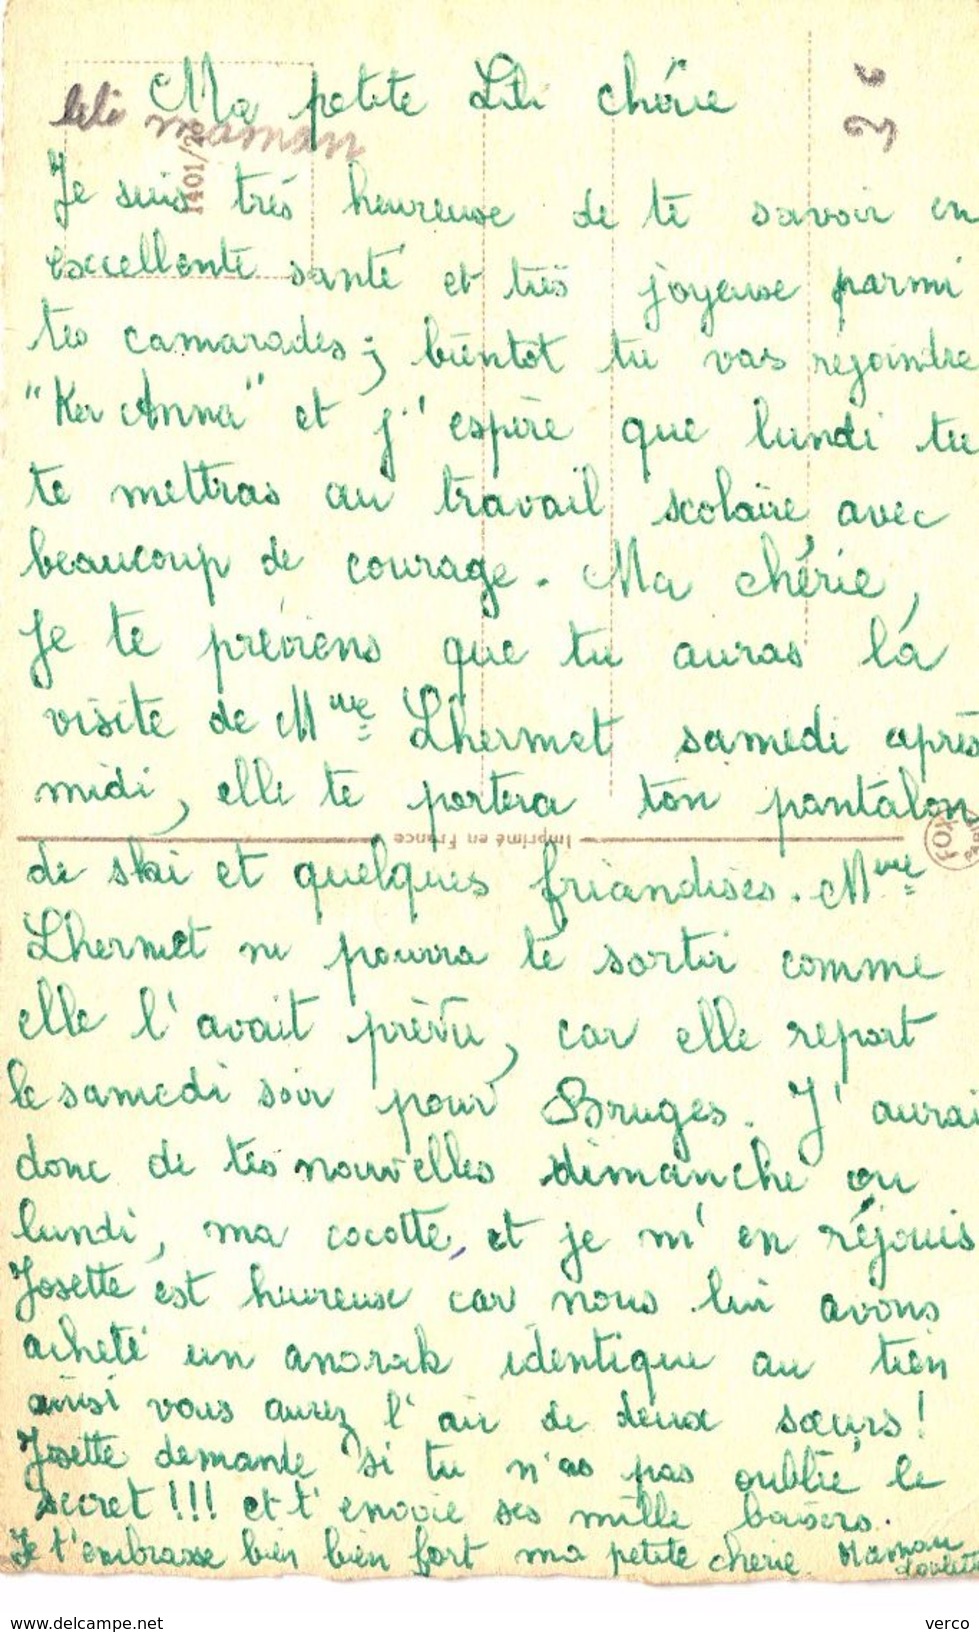 Ma petite Lili chérie
lili maman
2 €
1401/20
Je suis très heureuse de te savoir en
excellente santé et très joyeuse parmi
tes camarades; bientot tu vas rejoindre
"Ker Anna" et j'espère que lundi tu
te mettras au travail scolaire avec
beaucoup de courage. Ma chérie,
Je te préviens que tu auras la
visite de Mme Lhermet samedi après
midi, elle te portera ton pantalon
Imprimé en France
de ski et quelques friandises. Mme
Lhermet ne pourra te sortir comme
elle l'avait prévu, car elle repart
le samedi soir pour Bruges. J'aurai
donc de tes nouvelles dimanche ou
lundi, ma cocotte, et je m'en réjouis
Josette est heureuse car nous lui avons
acheté un anorak identique au tien
ainsi vous aurez l'air de deux sœurs!
Josette demande si tu n'as pas oublié le
secret!!! et t'envoie ses mille baisers.
Je t'embrasse bien bien fort ma petite chérie. Maman
delcampe.net
verco